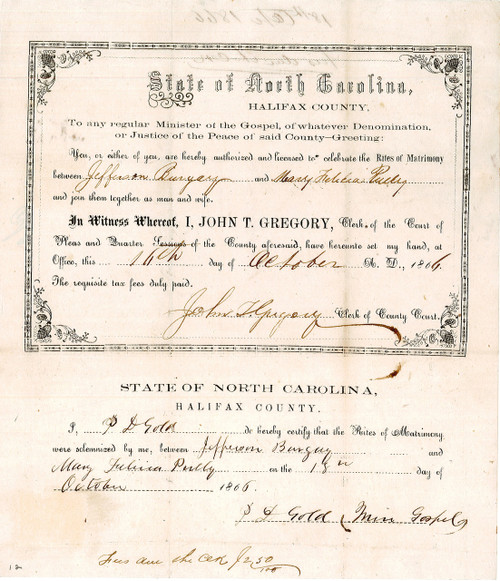 State of North Carolina,
HALIFAX COUNTY,
To any regular Minister of the Gospel, of whatever Denomination,
or Justice of the Peace of said County—Greeting:
You, or either of you, are hereby authorized and licensed to celebrate the Rites of Matrimony
between Jefferson and Mary Felicia
and join them together as man and wife.
In Witness Whereof, I, JOHN T. GREGORY, Clerk of the Court of
Pleas and Quarter Sessions of the County aforesaid, have hereunto set my hand, at
Office, this 16th day of October A. D., 1866.
The requisite tax fees duly paid.
John T. Gregory Clerk of County Court.
STATE OF NORTH CAROLINA,
HALIFAX COUNTY.
I, P D Gold do hereby certify that the Rites of Matrimony
were solemnized by me, between Jefferson and
Mary Felicia on the 18th day of
October 1866.
P D Gold Min Gospel
Fees due the Clk $2 50/100